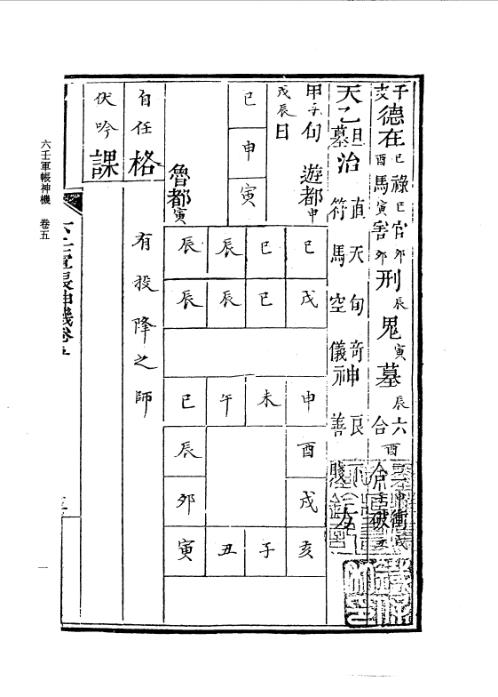 干支德在巳祿巳官卯刑辰鬼寅墓辰六合酉
酉馬寅害卯
衝戌
破
天乙旦墓治
直符天馬旬空奇儀神神良善
甲子旬遊都申
戊辰日
魯都寅
巳
申
寅
辰 辰 巳 巳
辰 辰 巳 戊
巳 午 未 申
辰 酉
卯 戌
寅 丑 子 亥
自任格
有投降之師
伏吟課
六壬軍帳神機 卷五
六壬軍帳神機卷五
一